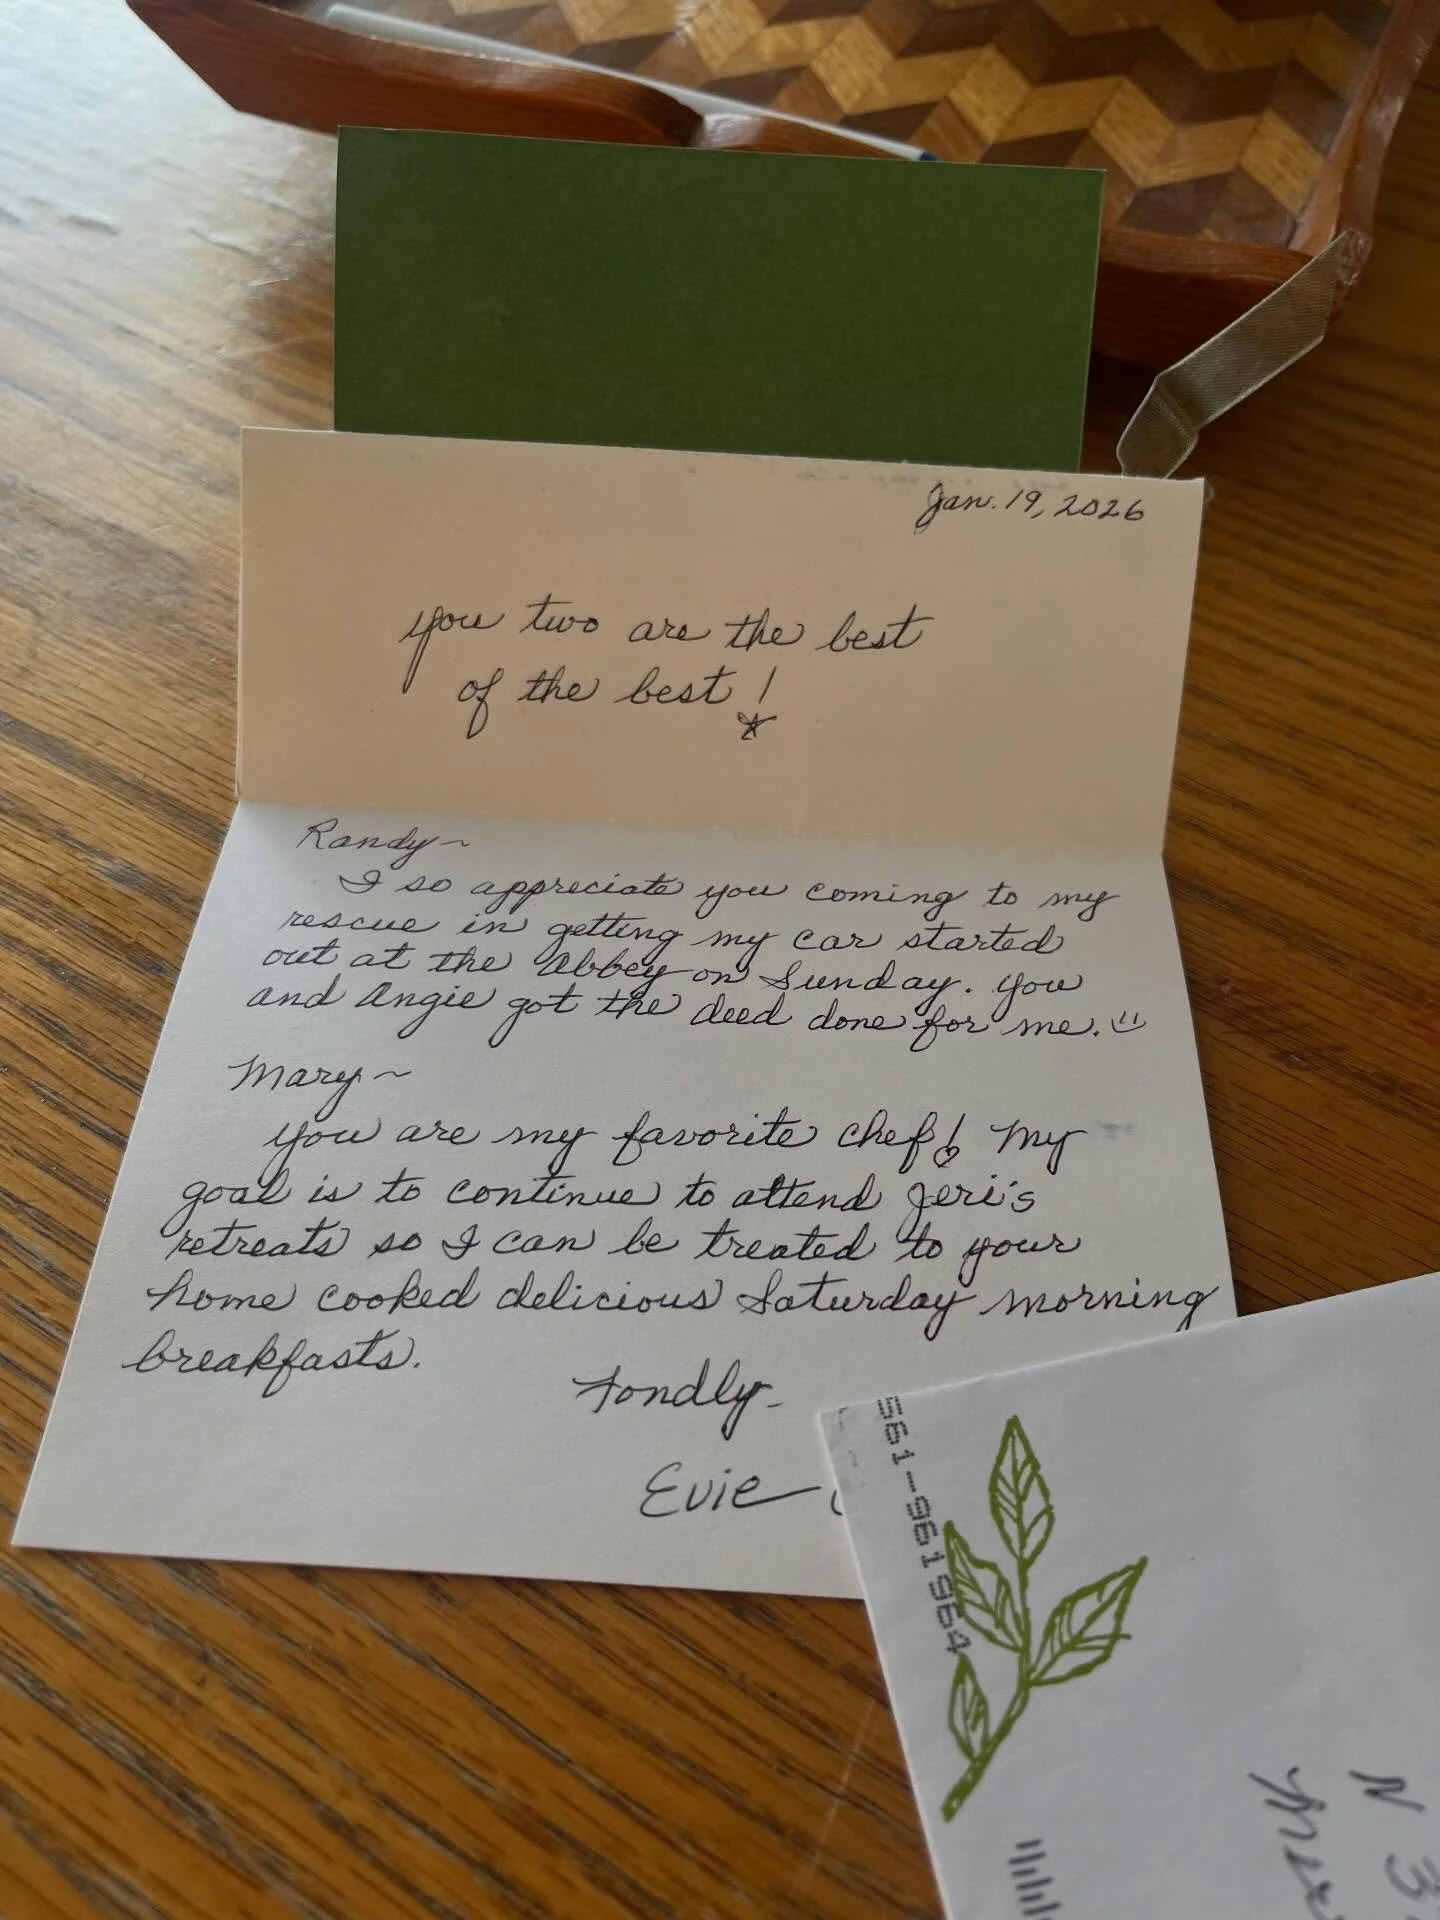 Jan. 19, 2026
you two are the best
of the best!
Randy~
I so appreciate you coming to my
rescue in getting my car started
out at the Abbey on Sunday. you
and Angie got the deed done for me.
Mary~
you are my favorite chef! My
goal is to continue to attend Jeri's
retreats so I can be treated to your
home cooked delicious Saturday morning
breakfasts.
Fondly-
Evie
561-961964
N 3